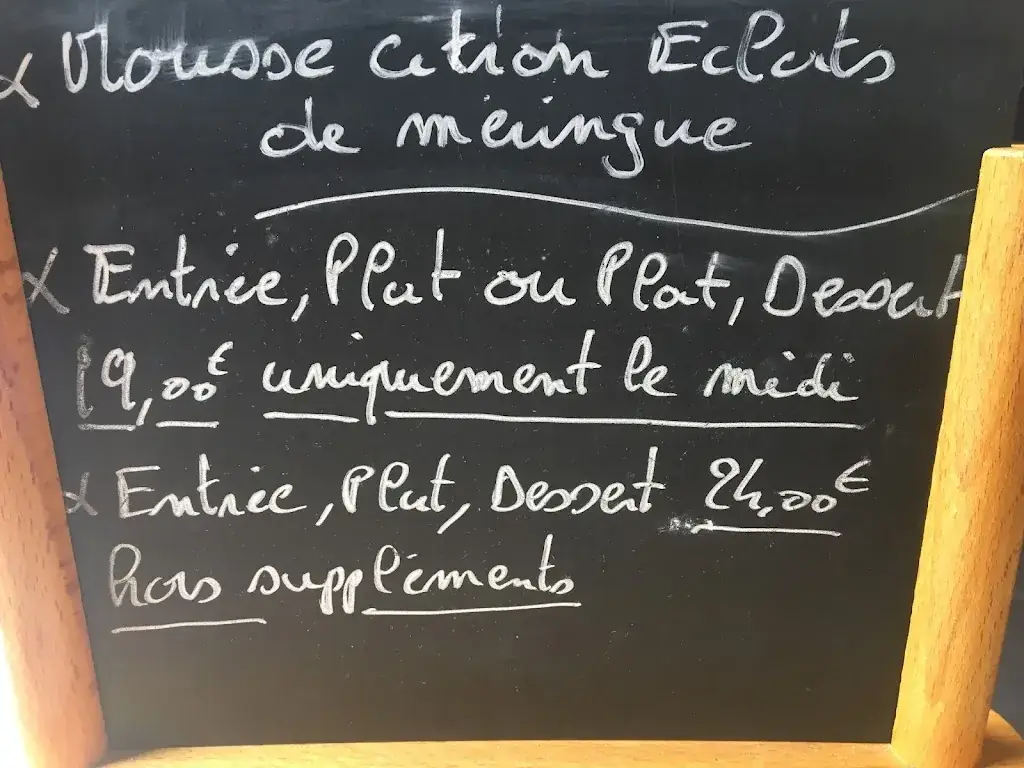 x Mousse citron Eclats
de meringue
x Entrée, Plat ou Plat, Dessert
19,00€ uniquement le midi
x Entrée, Plat, Dessert 24,00€
hors suppléments